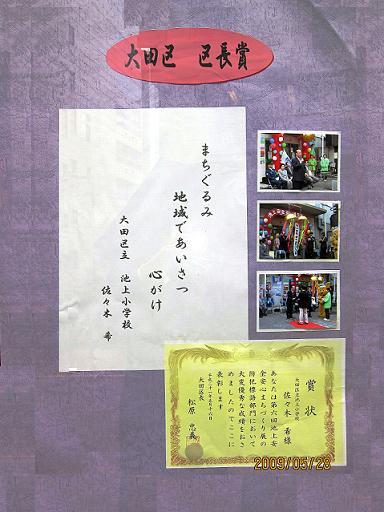 大田区 区長賞
まちぐるみ
地域であいさつ
心がけ
大田区立 池上小学校
佐々木 希
賞状
大田区立池上小学校
佐々木 希様
あなたは第六回池上安
全安心まちづくり展の
防犯標語部門において
大変優秀な成績をおさ
めましたのでここに
表彰します
大田区長
松原 忠義
2009/05/28